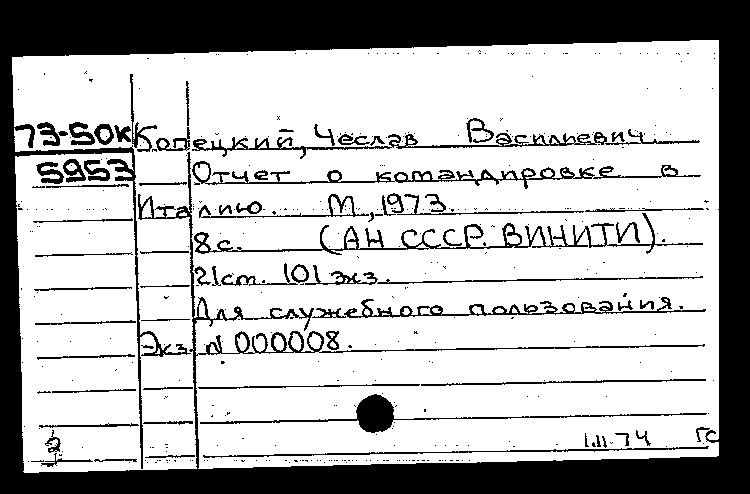 73-50к Копецкий, Чеслав Васильевич.
5953 Отчет о командировке в
Италию. М., 1973.
8с. (АН СССР. ВИНИТИ).
21см. 101 экз.
Для служебного пользования.
Экз. N 000008.
1.II.74 ГС